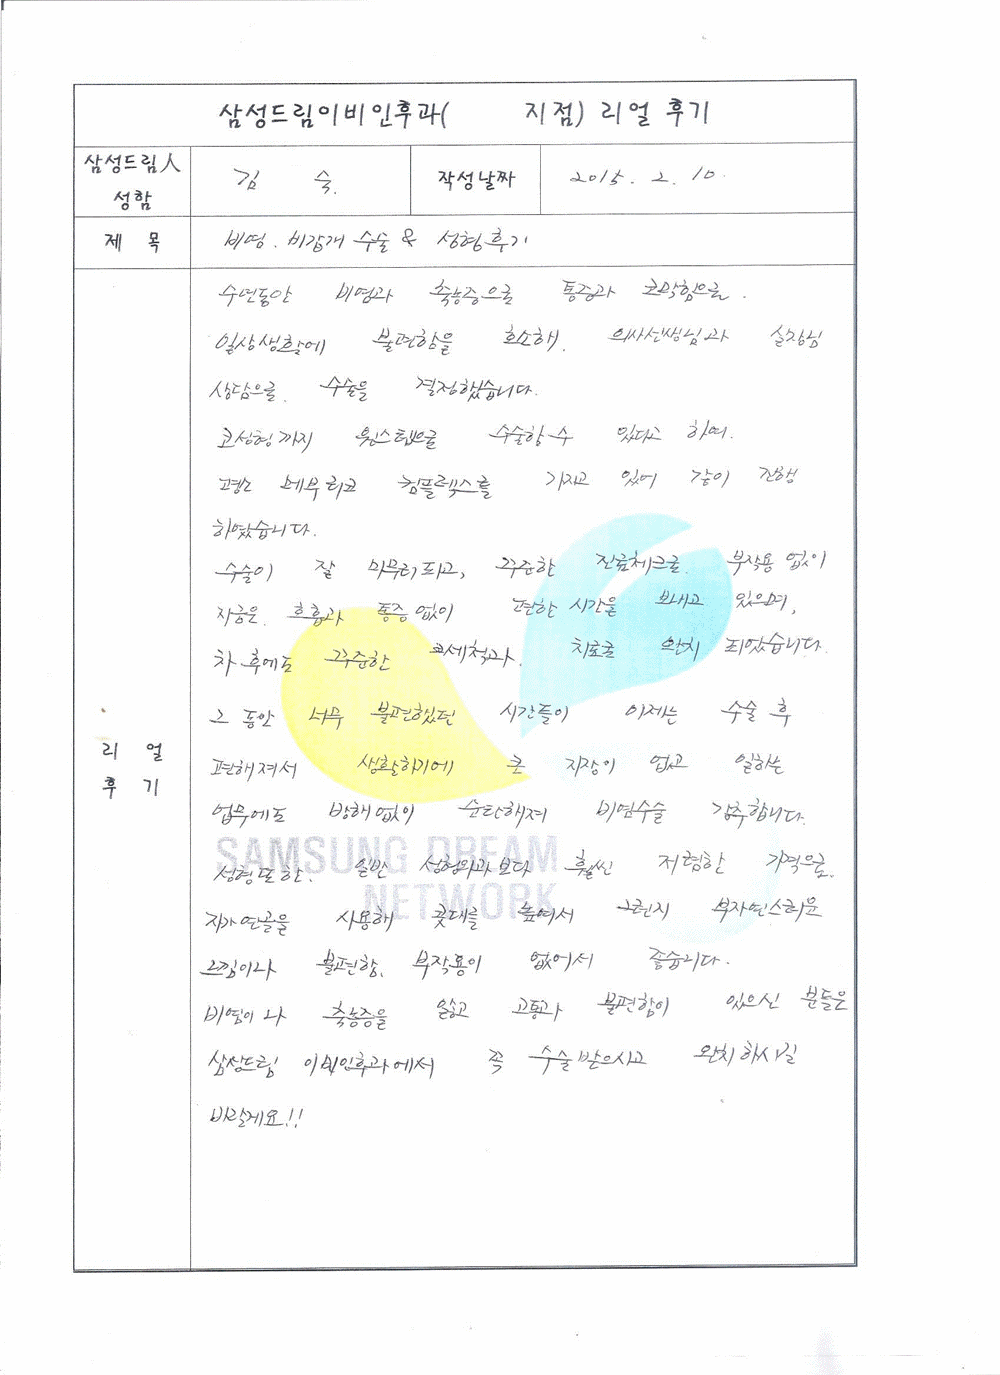 삼성드림이비인후과( 지점) 리얼 후기
삼성드림人 성함
김 숙.
작성날짜
2015. 2. 10.
제 목
비염. 비갑개 수술 & 성형후기
리 얼
후 기
수년동안 비염과 축농증으로 통증과 코막힘으로.
일상생활에 불편함을 호소해. 의사선생님과 실장님
상담으로. 수술을 결정했습니다.
코성형까지 원스텝으로 수술할 수 있다고 하여.
평소 코 컴플렉스를 가지고 있어 같이 진행
하였습니다.
수술이 잘 마무리되고, 꾸준한 진료체크로. 부작용 없이
지금은. 호흡과 통증 없이 편한 시간을 보내고 있으며,
차 후에도 꾸준한 코세척과. 치료로 완치 되었습니다.
그 동안 너무 불편했던 시간들이 이제는 수술 후
편해져서 생활하기에 큰 지장이 없고 일하는
업무에도 방해없이 순탄해져 비염수술 강추합니다.
성형또한. 일반 성형외과보다 훨씬 저렴한 가격으로.
자가연골을 사용해 콧대를 높여서 그런지 부자연스러운
느낌이나 불편함. 부작용이 없어서 좋습니다.
비염이나 축농증을 앓고 고통과 불편함이 있으신 분들은
삼성드림 이비인후과에서 꼭 수술받으시고 완치하시길
바랄게요!!
SAMSUNG DREAM
NETWORK